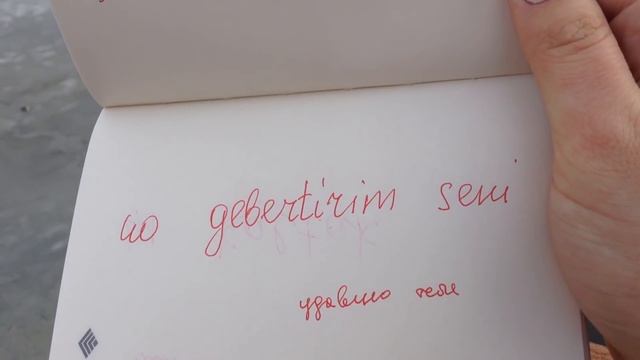 но gebertirim seni
удавлю тебя